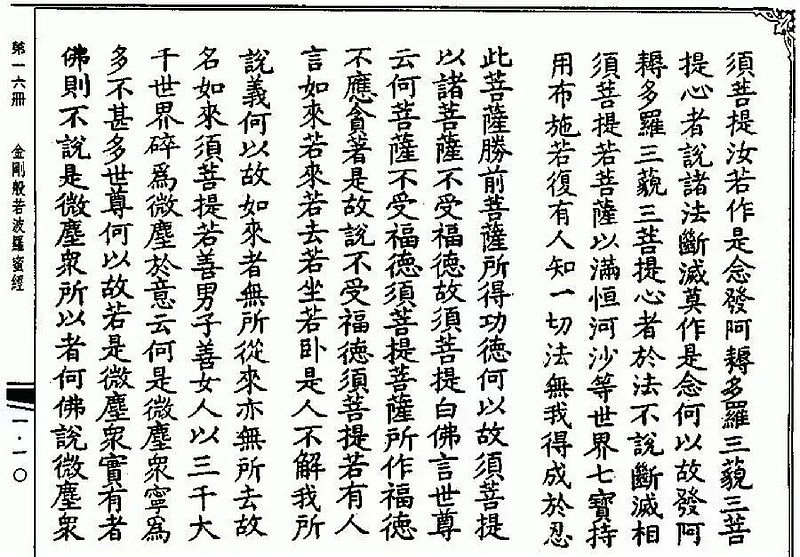 須菩提汝若作是念發阿耨多羅三藐三菩
提心者說諸法斷滅莫作是念何以故發阿
耨多羅三藐三菩提心者於法不說斷滅相
須菩提若菩薩以滿恒河沙等世界七寶持
用布施若復有人知一切法無我得成於忍
此菩薩勝前菩薩所得功德何以故須菩提
以諸菩薩不受福德故須菩提白佛言世尊
云何菩薩不受福德須菩提菩薩所作福德
不應貪著是故說不受福德須菩提若有人
言如來若來若去若坐若卧是人不解我所
說義何以故如來者無所從來亦無所去故
名如來須菩提若善男子善女人以三千大
千世界碎爲微塵於意云何是微塵衆寧爲
多不甚多世尊何以故若是微塵衆實有者
佛則不說是微塵衆所以者何佛說微塵衆
第一六冊
金剛般若波羅蜜經
一·一〇